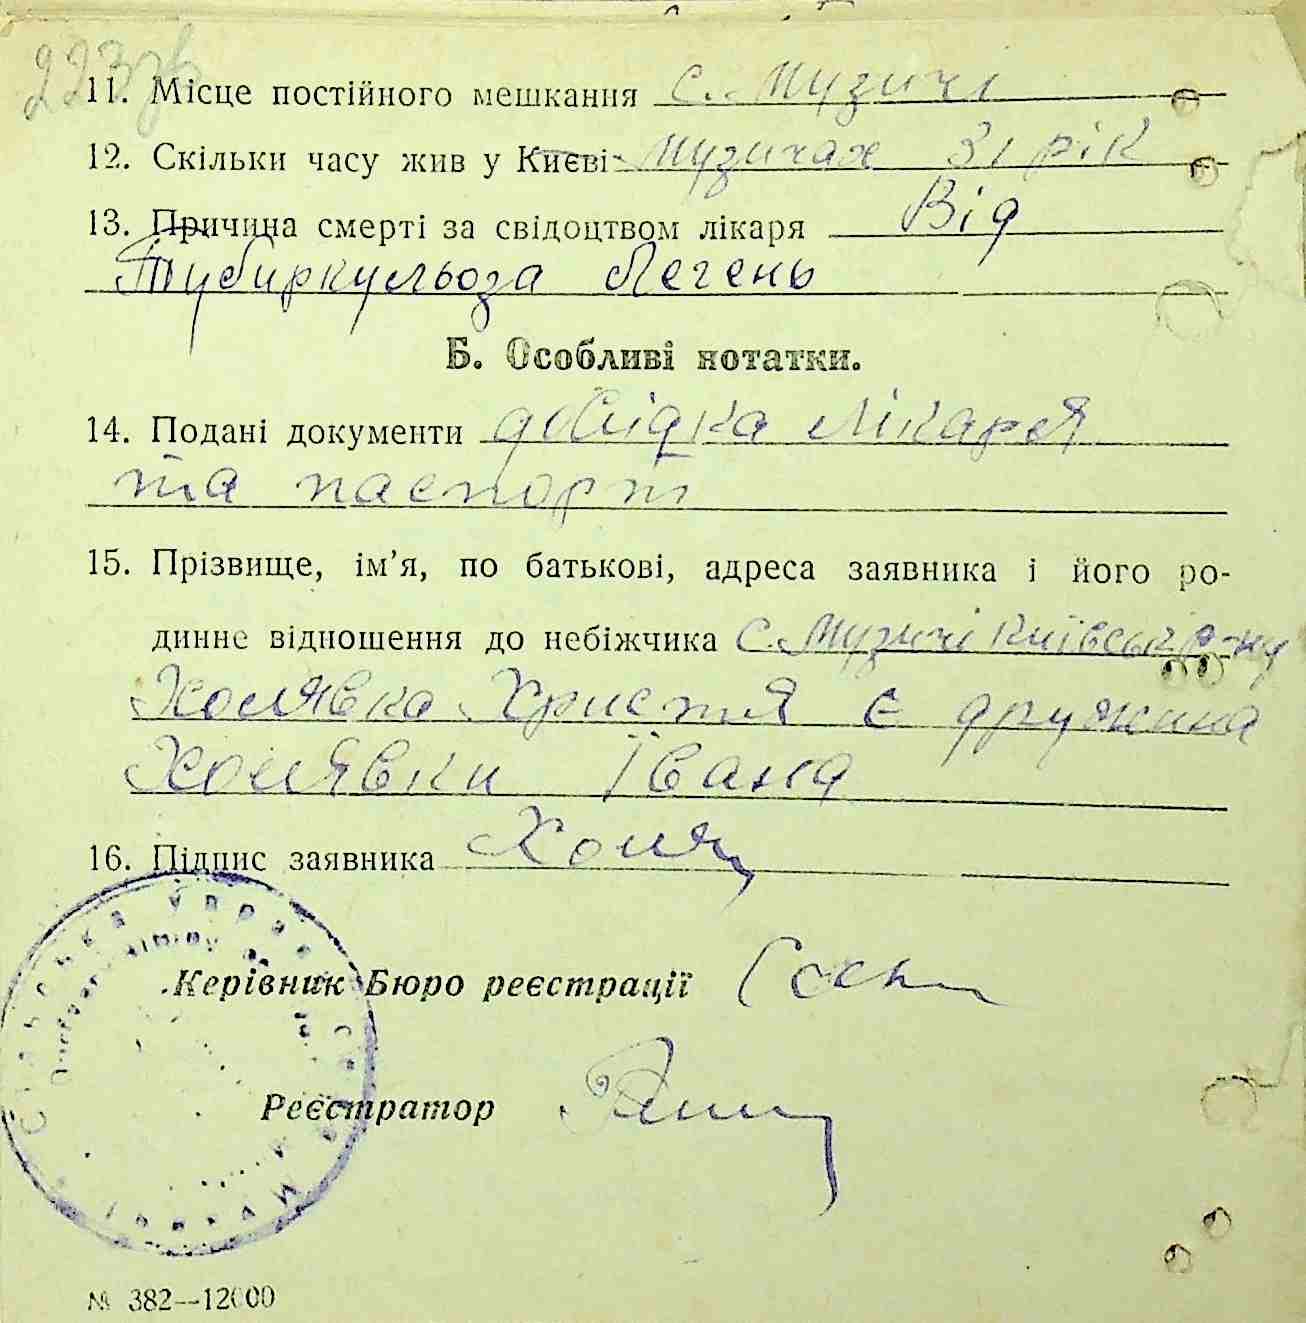 223зв
11. Місце постійного мешкання с. Музичі
12. Скільки часу жив у Києві Музичах 31 рік
13. Причина смерті за свідоцтвом лікаря Від
Тубиркульоза Легень
Б. Особливі нотатки.
14. Подані документи довідка лікаря
та паспорт
15. Прізвище, ім’я, по батькові, адреса заявника і його ро-
динне відношення до небіжчика с. Музичі Київськ р-ну
Холявка Христя є дружина
Холявки Івана
16. Підпис заявника Холяв
Керівник Бюро реєстрації
Реєстратор
Сільська Управа
Музичі
№ 382—12000